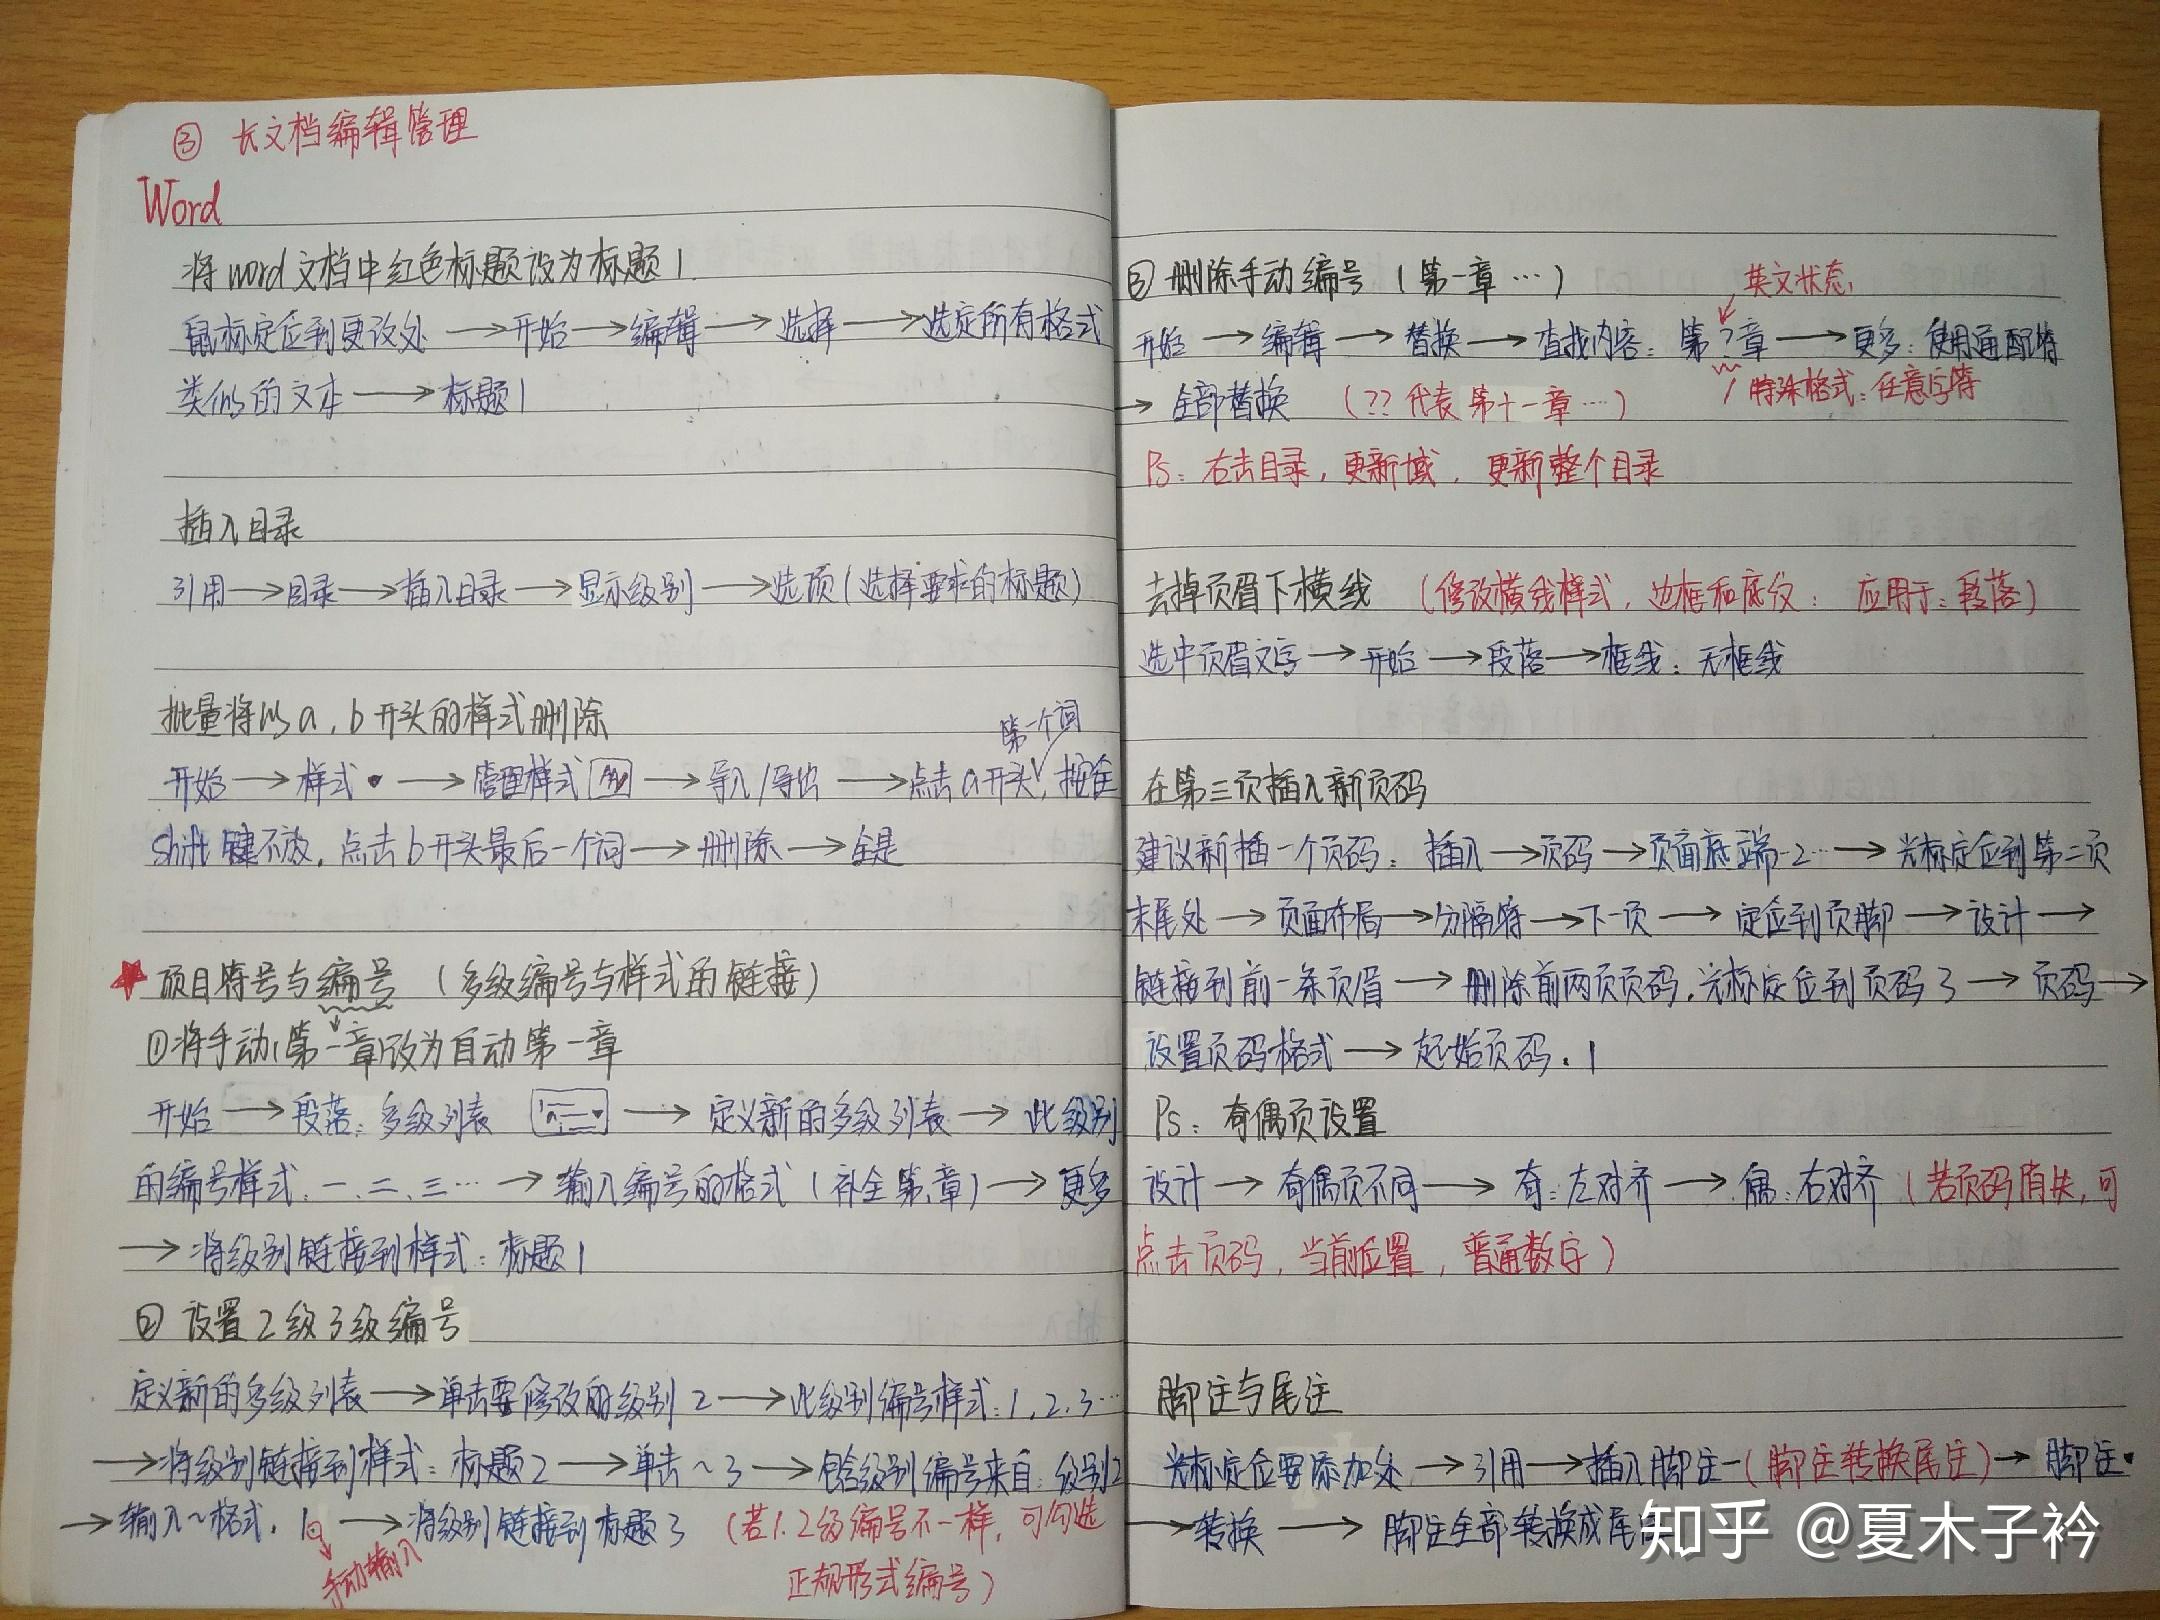 ③ 长文档编辑管理
Word
将word文档中红色标题设为标题1.
鼠标定位到更改处→开始→编辑→选择→选定所有格式
类似的文本→标题1
插入目录
引用→目录→插入目录→显示级别→选项(选择要求的标题)
批量将以a,b开头的样式删除
第一个词
开始→样式→管理样式→导入/导出→点击a开头,按住
shift键不放,点击b开头最后一个词→删除→全是
★ 项目符号与编号 (多级编号与样式的链接)
①将手动(第一章)改为自动第一章
开始→段落:多级列表→定义新的多级列表→此级别
的编号样式.一、二、三…→输入编号的格式(补全第.章)→更多
→将级别链接到样式:标题1
② 设置2级3级编号
定义新的多级列表→单击要修改的级别2→此级别编号样式:1,2,3…
→将级别链接到样式:标题2→单击~3→包含级别编号来自:级别2
→输入~格式.1→将级别链接到标题3 (若1.2级编号不一样,可勾选
手动输入
正规形式编号)
③ 删除手动编号 (第一章…)
英文状态
开始→编辑→替换→查找内容:第?章→更多:使用通配符
/特殊格式:任意字符
→全部替换 (??代表第十一章…)
Ps:右击目录,更新域,更新整个目录
去掉页眉下横线 (修改横线样式,边框和底纹: 应用于:段落)
选中页眉文字→开始→段落→框线:无框线
在第三页插入新页码
建议新插一个页码:插入→页码→页面底端-2…→光标定位到第二页
末尾处→页面布局→分隔符→下一页→定位到页脚→设计→
链接到前一条页眉→删除前两页页码.光标定位到页码3→页码→
设置页码格式→起始页码.1
Ps:奇偶页设置
设计→奇偶页不同→奇:左对齐→偶:右对齐 (若页码消失,可
点击页码,当前位置,普通数字)
脚注与尾注
光标定位要添加处→引用→插入脚注-(脚注转换尾注)→脚注
→转换→脚注全部转换成尾
知乎 @夏木子衿